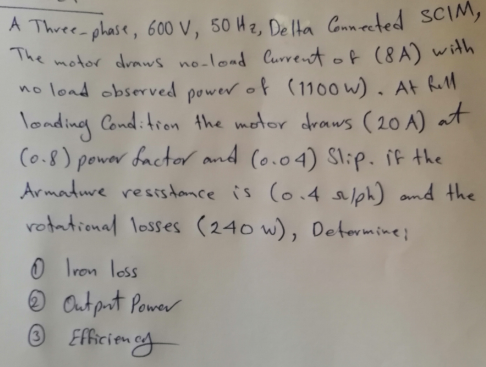 A Three-phase, 600 V, 50 Hz, Delta Connected SCIM,
The motor draws no-load Current of (8A) with
no load observed power of (1100 W). At full
loading Condition the motor draws (20 A) at
(0.8) power factor and (0.04) Slip. if the
Armature resistance is (0.4 Ω/ph) and the
rotational losses (240 W), Determine;
① Iron loss
② Output Power
③ Efficiency